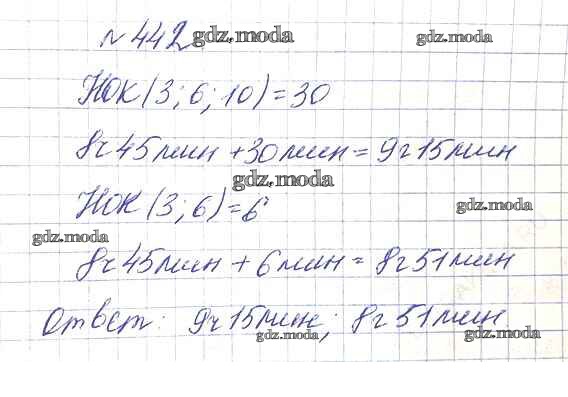 № 442 gdz.moda gdz.moda
НОК (3; 6; 10) = 30
8ч 45мин + 30мин = 9ч 15мин
gdz.moda
НОК (3; 6) = 6 gdz.moda
gdz.moda
8ч 45мин + 6мин = 8ч 51мин
Ответ: 9ч 15мин; 8ч 51мин
gdz.moda gdz.moda